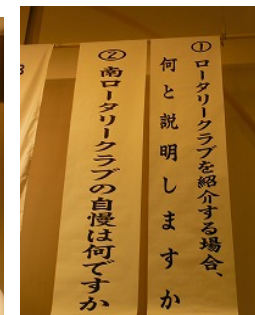 ①ロータリークラブを紹介する場合、
何と説明しますか
②南ロータリークラブの自慢は何ですか